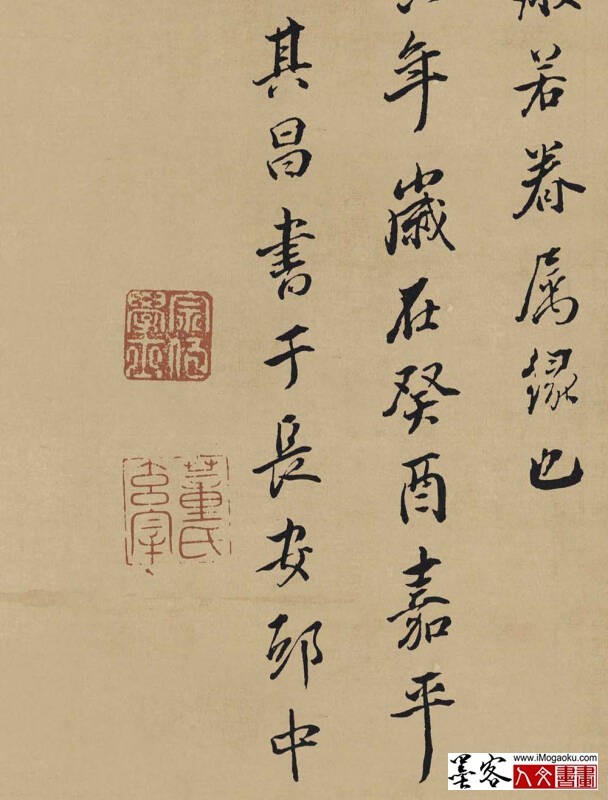 若眷属緣也
年歲在癸酉嘉平
其昌書于長安邸中
宗伯學士
董氏玄宰
墨客
www.iMogaoku.com
人文書畫